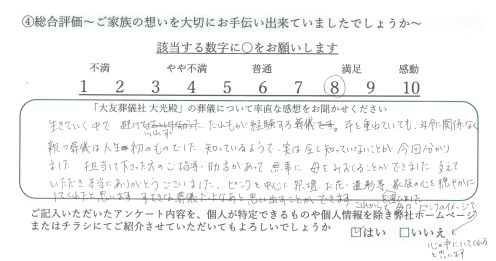 ④総合評価～ご家族の想いを大切にお手伝い出来ていましたでしょうか～
該当する数字に○をお願いします
不満 やや不満 普通 満足 感動
1 2 3 4 5 6 7 8 9 10
「大友葬儀社 大光殿」の葬儀について率直な感想をお聞かせください
生きていく中で 避けられず だれもが経験する葬儀です。年を重ねていても、年令に関係なく
親の葬儀は人生初のものでした。知っているようで、実は全く知っていないことが今回分かり
ました。担当して下さった方のご指導・助言があって無事に母をおくることができました。支えて
いただき本当にありがとうございました。ピンクを中心に祭壇 お花・遺影等、家族の心を穏やかに
してくれたと思います。すてきな葬儀だったなあと思い出すことができます。
これからも母はピンクのイメージで
心の中にいてくれると思います
ご記入いただいたアンケート内容を、個人が特定できるものや個人情報を除き弊社ホームページ
またはチラシにてご紹介させていただいてもよろしいでしょうか
☑はい □いいえ